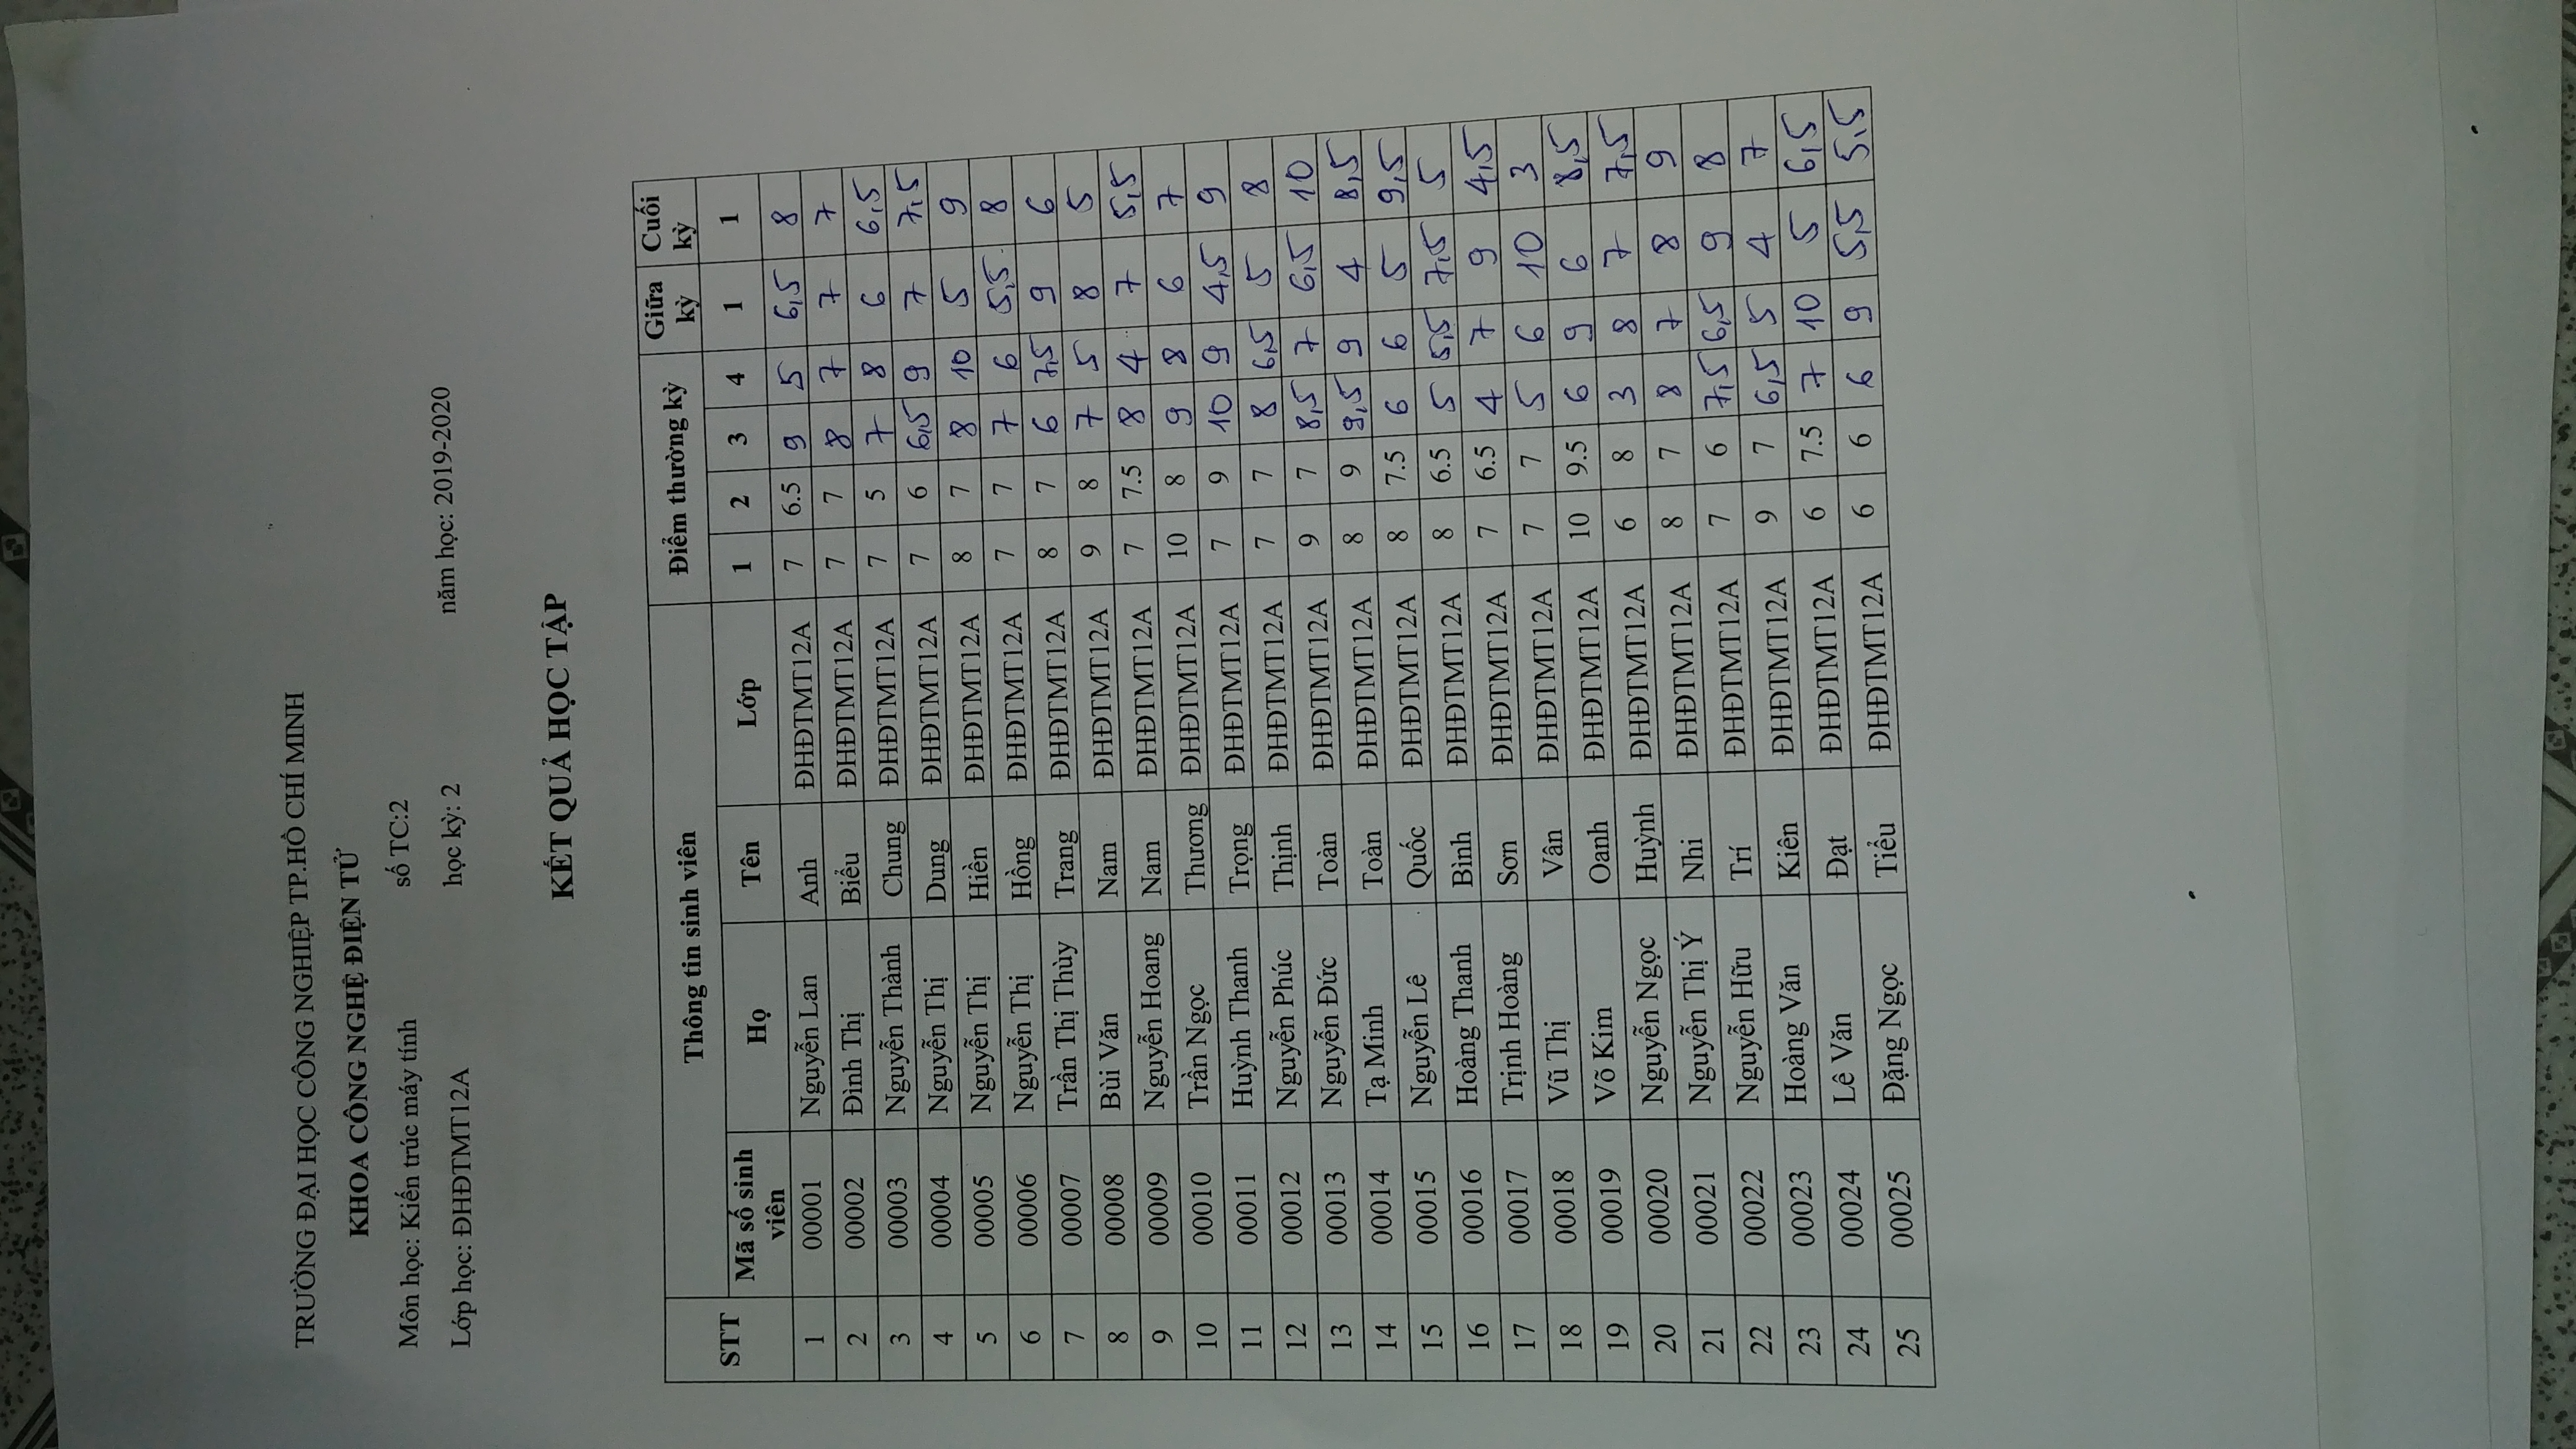 TRƯỜNG ĐẠI HỌC CÔNG NGHIỆP TP.HỒ CHÍ MINH
KHOA CÔNG NGHỆ ĐIỆN TỬ
Môn học: Kiến trúc máy tính số TC:2
Lớp học: ĐHĐTMT12A học kỳ: 2 năm học: 2019-2020
KẾT QUẢ HỌC TẬP
STT Thông tin sinh viên Điểm thường kỳ Giữa kỳ Cuối kỳ
Mã số sinh viên Họ Tên Lớp 1 2 3 4 1 1
1 00001 Nguyễn Lan Anh ĐHĐTMT12A 7 6.5 9 5 6,5 8
2 00002 Đình Thị Biểu ĐHĐTMT12A 7 7 8 7 7 7
3 00003 Nguyễn Thành Chung ĐHĐTMT12A 7 5 7 8 6 6,5
4 00004 Nguyễn Thị Dung ĐHĐTMT12A 7 6 6,5 9 7 7,5
5 00005 Nguyễn Thị Hiền ĐHĐTMT12A 8 7 8 10 5 9
6 00006 Nguyễn Thị Hồng ĐHĐTMT12A 7 7 7 6 5,5 8
7 00007 Trần Thị Thùy Trang ĐHĐTMT12A 8 7 6 7,5 9 6
8 00008 Bùi Văn Nam ĐHĐTMT12A 9 8 7 5 8 5
9 00009 Nguyễn Hoang Nam ĐHĐTMT12A 7 7.5 8 4 7 5,5
10 00010 Trần Ngọc Thương ĐHĐTMT12A 10 8 9 8 6 7
11 00011 Huỳnh Thanh Trọng ĐHĐTMT12A 7 9 10 9 4,5 9
12 00012 Nguyễn Phúc Thịnh ĐHĐTMT12A 7 7 8 6,5 5 8
13 00013 Nguyễn Đức Toàn ĐHĐTMT12A 9 7 8,5 7 6,5 10
14 00014 Tạ Minh Toàn ĐHĐTMT12A 8 9 9,5 9 4 8,5
15 00015 Nguyễn Lê Quốc ĐHĐTMT12A 8 7.5 6 6 5 9,5
16 00016 Hoàng Thanh Bình ĐHĐTMT12A 8 6.5 5 5,5 7,5 5
17 00017 Trịnh Hoàng Sơn ĐHĐTMT12A 7 6.5 4 7 9 4,5
18 00018 Vũ Thị Vân ĐHĐTMT12A 7 7 5 6 10 3
19 00019 Võ Kim Oanh ĐHĐTMT12A 10 9.5 6 9 6 8,5
20 00020 Nguyễn Ngọc Huỳnh ĐHĐTMT12A 6 8 3 8 7 7,5
21 00021 Nguyễn Thị Ý Nhi ĐHĐTMT12A 8 7 8 7 8 9
22 00022 Nguyễn Hữu Trí ĐHĐTMT12A 7 6 7,5 6,5 9 8
23 00023 Hoàng Văn Kiên ĐHĐTMT12A 9 7 6,5 5 4 7
24 00024 Lê Văn Đạt ĐHĐTMT12A 6 7.5 7 10 5 6,5
25 00025 Đặng Ngọc Tiểu ĐHĐTMT12A 6 6 6 9 5,5 5,5